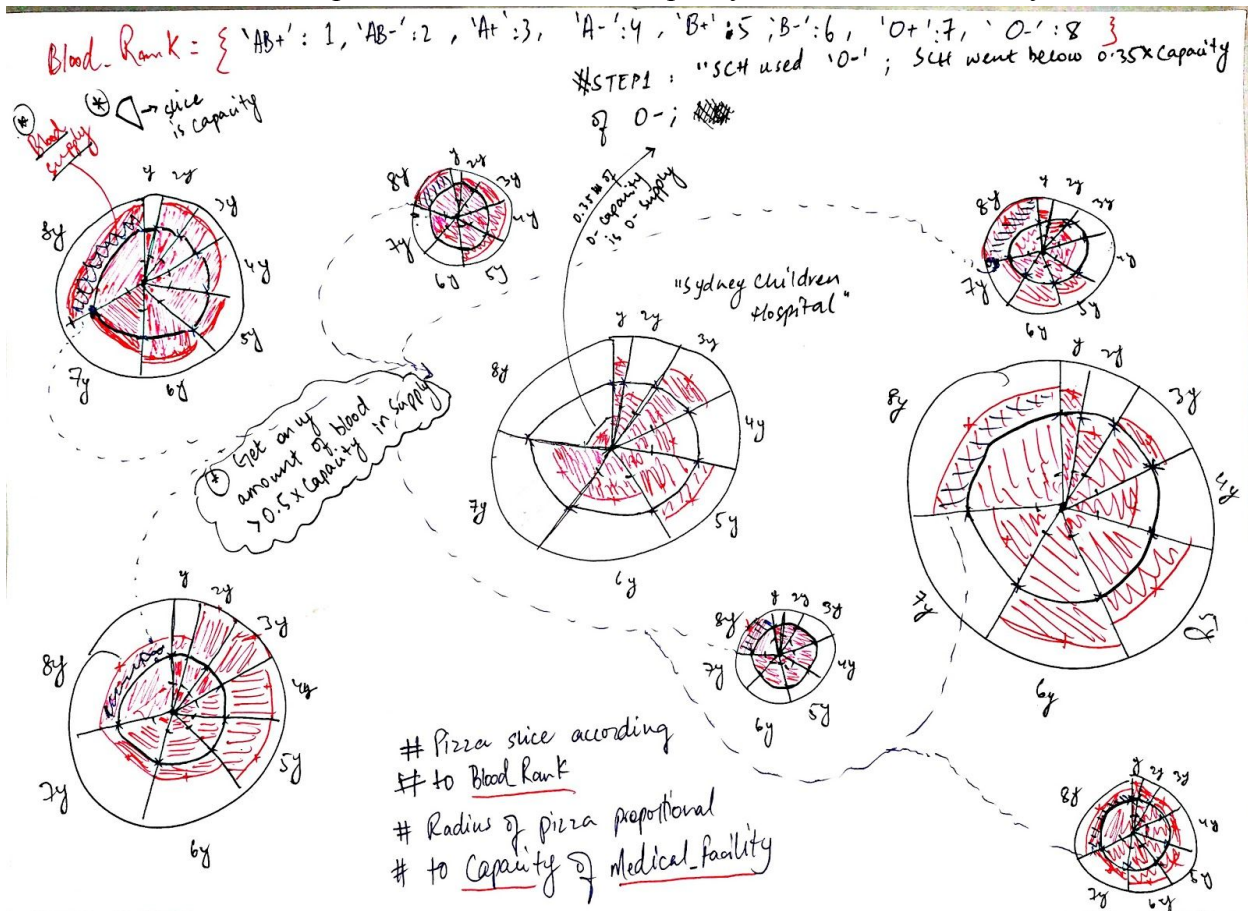 Blood_Rank = { 'AB+' : 1, 'AB-' : 2 , 'A+' : 3, 'A-' : 4 , 'B+' : 5 , 'B-' : 6 , 'O+' : 7, 'O-' : 8 }
#STEP1 : "SCH used 'O-' ; SCH went below 0.35xCapacity
of O- ;
* Blood
supply
* → slice
is capacity
0.35 of
O- capacity
is O- supply
y 2y 3y 4y 5y 6y 7y 8y
y 2y 3y 4y 5y 6y 7y 8y
y 2y 3y 4y 5y 6y 7y 8y
"Sydney Children
Hospital"
y 2y 3y 4y 5y 6y 7y 8y
y 2y 3y 4y 5y 6y 7y 8y
* Get any
amount of blood
>0.5 x Capacity in supply
y 2y 3y 4y 5y 6y 7y 8y
y 2y 3y 4y 5y 6y 7y 8y
y 2y 3y 4y 5y 6y 7y 8y
# Pizza slice according
# to Blood_Rank
# Radius of pizza propotional
# to Capacity of Medical_facility